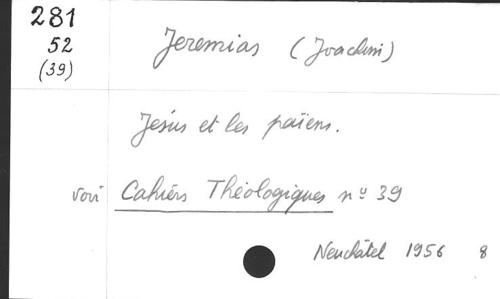 281
52
(39)
Jeremias (Joachim)
Jésus et les païens.
voir Cahiers Théologiques nº 39
Neuchâtel 1956 8